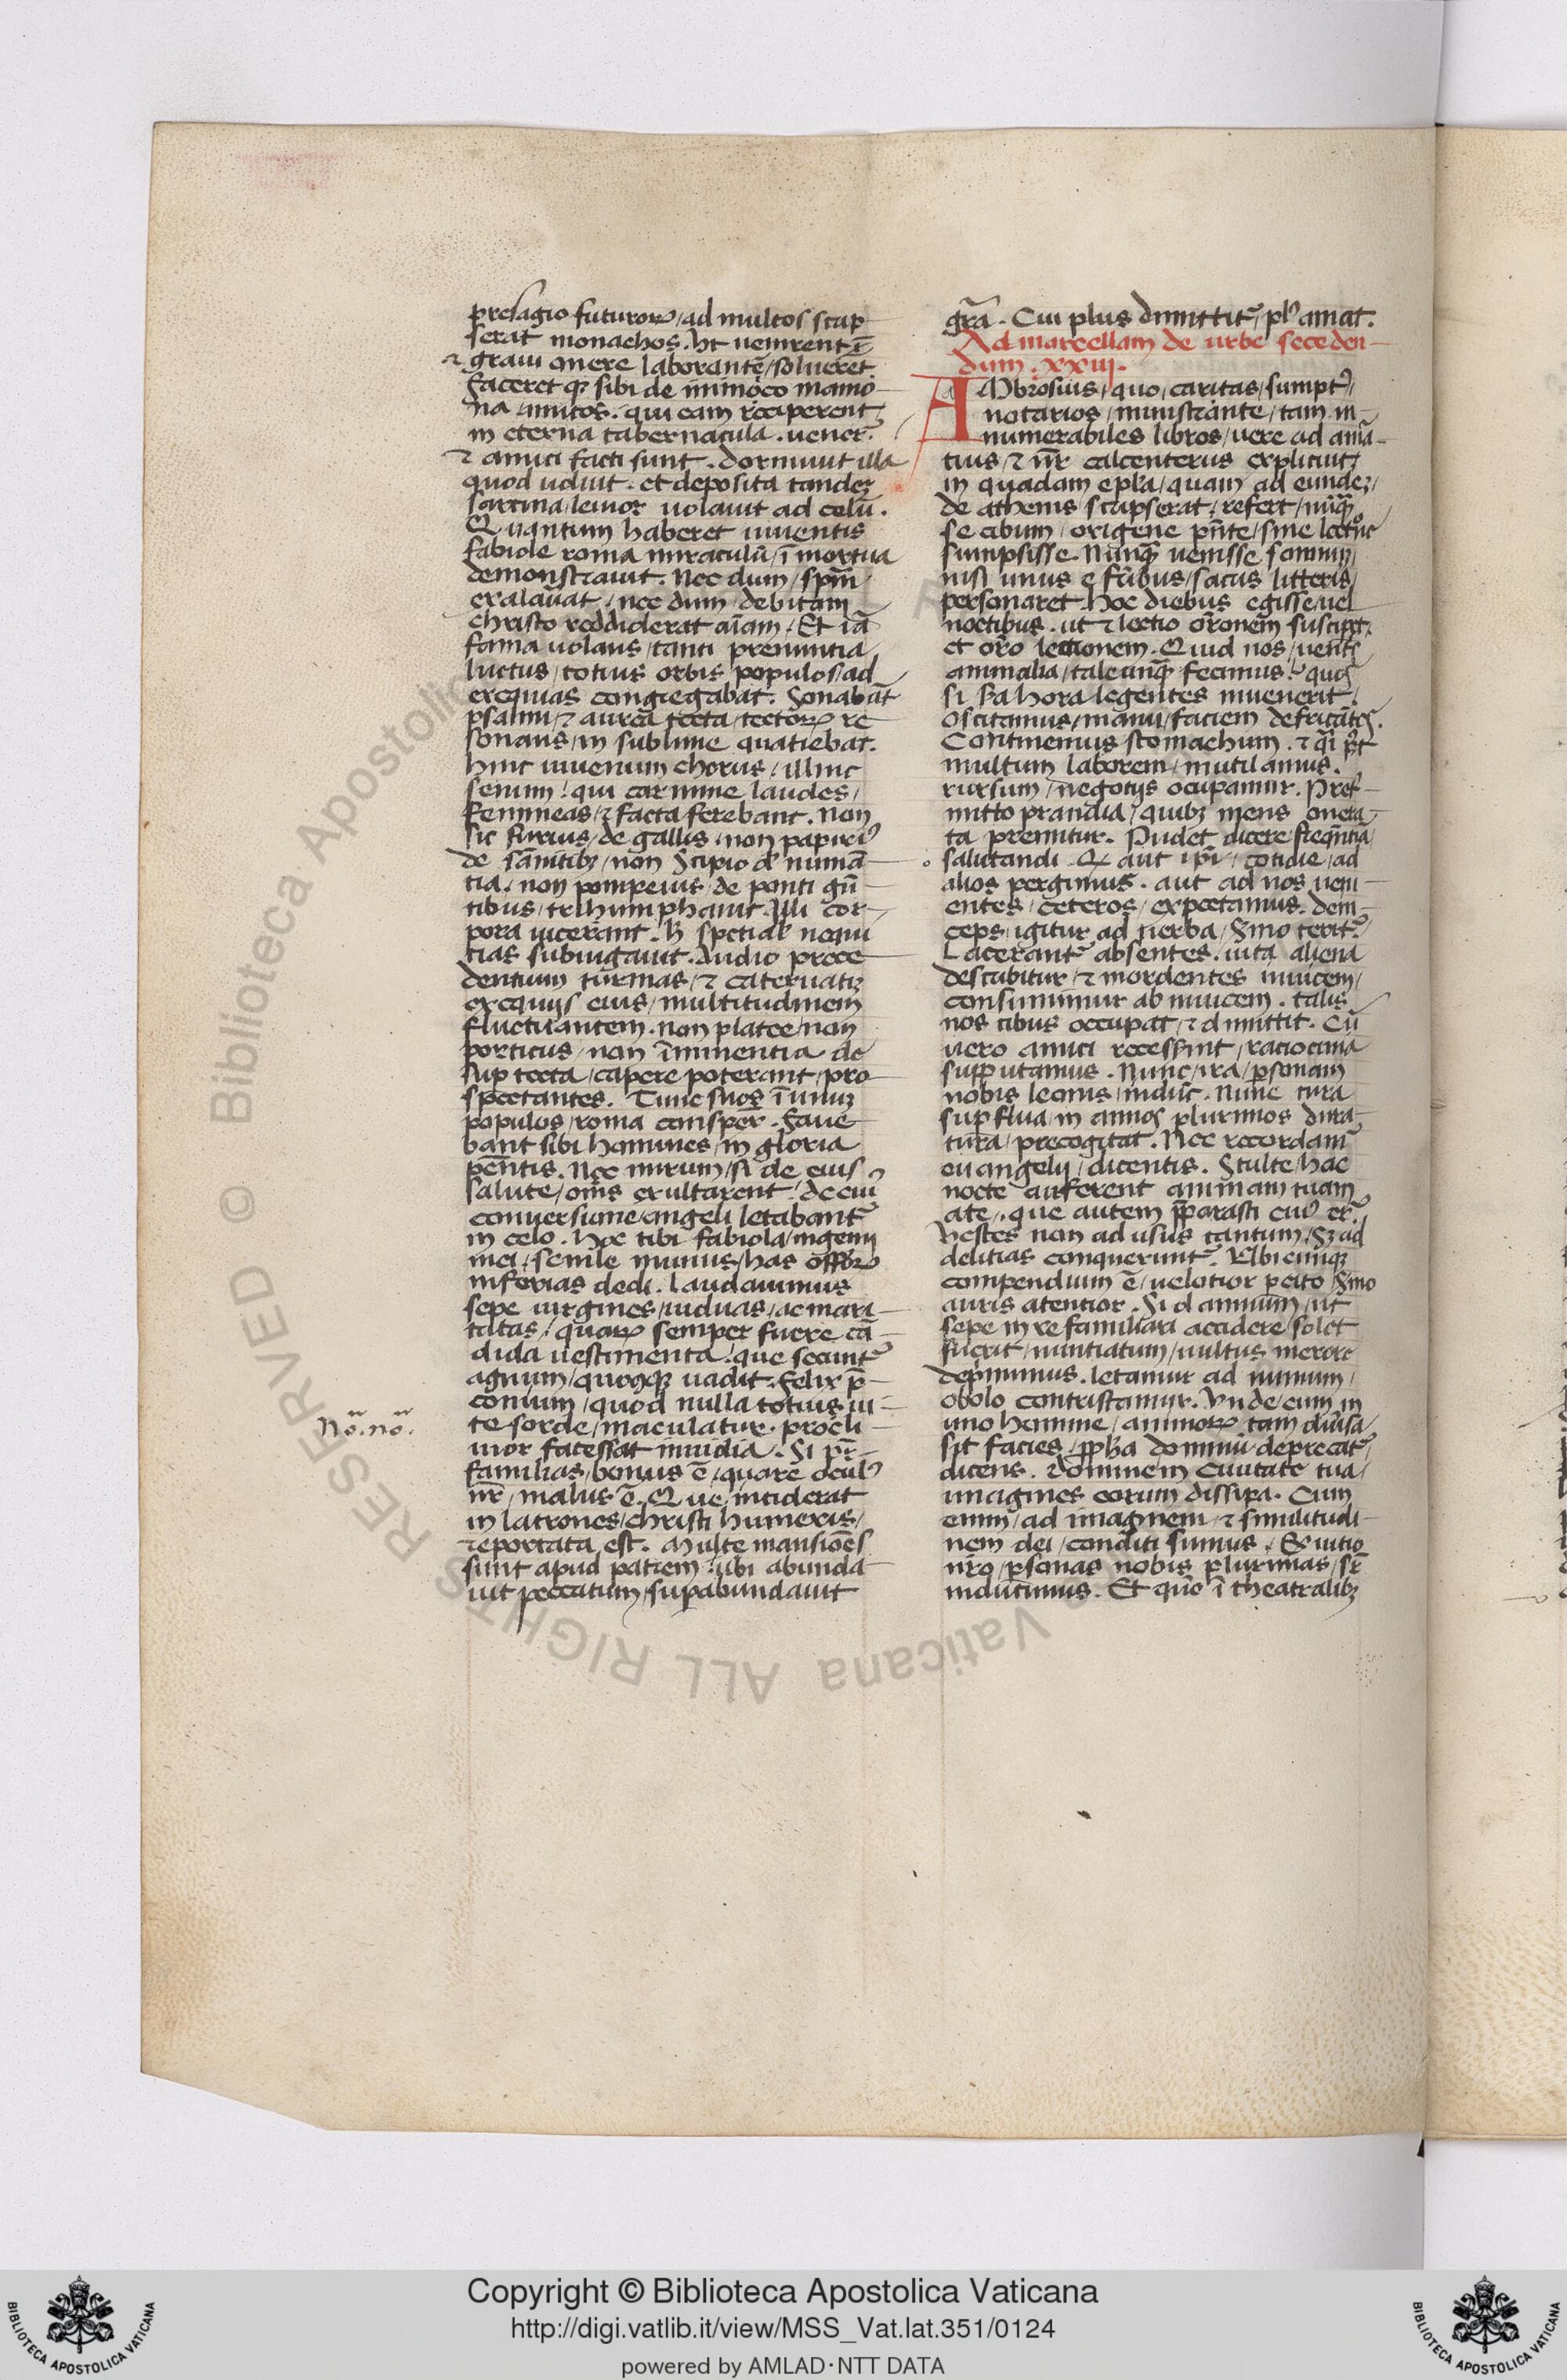 presagio futuroꝝ / ad multos scrip
serat monachos. Ut uenirent ī
⁊ graui onere laborantē / soluerēt
faceret qꝫ sibi de inimico mamo
na / amicos. qui eam reciperent
in eterna tabernacula. uenerᷓt
⁊ amici facti sunt. dormiuit illa
quod uoluit. et deposita tandeꝫ
sarcina / leuior uolauit ad celū.
Quantum haberet uiuentis
fabiole roma miraculū / ī mortua
demonstrauit. Nec dum / spm̄
exalauat / nec dum / debitam
christo reddiderat aīam. Et iā
fama uolans / tanti prenuntia
luctus / totius orbis populos / ad
exequias congregabat. Sonabāt
psalmi / ⁊ aurea tecta / tectoꝝ re
sonans / in sublime quatiebat.
hinc iuuenum chorus / illinc
senum / qui carmine laudes /
femineas / ⁊ facta ferebant. Non
sic furius / de gallis / non papiriꝰ
de sānitibꝫ / non Scipio d' numā
tia / non pompeius / de ponti gn̄
tibus / triumphauit. Illi cor
pora uicerant. h̄ spetiales nequi
tias subiugauit. Audio prece
dentium turmas / ⁊ cateruatiꝫ
exequijs eius / multitudinem
fluctuantem. non platee / non
porticus / non īminentia de
sup tecta / capere poterant / pro
spectantes. Tunc suos ī unuꝫ
populos / roma conspex̄. faue
bant sibi homines / in gloria
penitentis. Nec mirum / si de eius
salute / om̄s exultarent / de cuiꝰ
conuersione / angeli letabantᷓ
in celo. hoc tibi fabiola / ingenij
mei / senile munus / has offitioꝝ
inferias dedi. laudauimus
sepe uirgines / uiduas / ac mari
tatas / quaꝝ semper fuere cā
dida uestimenta / que secuntᷓ
agnum / quoqꝫ uadit. felix p̄
conium / quod nulla totius ui
te sorde / maculatur. procli
uior facessat inuidia. Si pr̄
familias / bonus ē / quare oculꝰ
nr̄ / malus ē. Que inciderat
in latrones / christi humeris /
reportata est. Multe mansiōes
sunt apud patrem / ubi abunda
uit peccatum / supabundauit
Nō. nō.
gr̄a. Cui plus dimittitᷓ / plꝰ amat.
Ad marcellam de urbe seceden
dum. xxiij.
AMbrosius / quo / caritas / sumptꝰ /
notarios / ministrante / tam in
numerabiles libros / uere ad amā
tius / ⁊ nr̄ calcenterus explicuit /
in quadam epl̄a / quam ad eundeꝫ /
de athenis / scripserat / refert / nūqꝫ
se cibum / origene pn̄te / sine lectōe
sumpsisse. Nunqꝫ uenisse somnum /
nisi unus e fr̄ibus / sacris litteris /
personaret. hoc diebus egisse / uel
noctibus. ut ⁊ lectio orōnem suscipet.
et orō lectionem. Quid nos / uentꝭ
animalia / tale unqꝫ fecimus? quos
si sc̄da hora legentes inuenerit /
oscitamus / manu / faciem defricātes.
Continemus stomachum. ⁊ qͣi pꝰt
multum laborem / mutilamus.
rursum / negotijs ocupamur. Pret
mitto prandia / quibꝫ mens onera
ta premitur. Pudet dicere freqn̄tiā /
salutandi. Qͣ aut ip̄i / cotidie / ad
alios pergimus. aut ad nos ueni
entes / ceteros / expectamus. dein
ceps / igitur ad uerba / smo teritᷓ
Lacerantᷓ absentes. uita aliena
describitur / ⁊ mordentes inuicem /
consumimur ab inuicem. talis
nos cibus occupat / ⁊ dimittit. Cū
uero amici recesserint / ratiocinia
supputamus. Nunc / ira / ꝑsonam
nobis leonis / induit. Nunc cura
supflua / in annos plurimos dura
tura / precogitat. Nec recordamᷓ
euangelij / dicentis. Stulte / hac
nocte auferent animam tuam
ate. que autem p̄parasti cuiꝰ erᷓt
Vestes non ad usus tantum / Sꝫ ad
delitias conquerunt ᷓ. Ubicunqꝫ
compendium ē / uelotior pecito / smo
auris atentior. Si damnum / ut
sepe in re familiari accidere / solet
fuerit / nuntiatum / uultus merore
depimimus. letamur ad nimum /
obolo contristamur. Vnde / cum in
uno homine / animoꝝ tam diu̓sa /
sit facies / ꝓph̄a dominū deprecatᷓ
dicens. Dominem Ciuitate tua /
imagines eorum dissipa. Cum
enim / ad imaginem / ⁊ similitudi
nem dei / conditi simus. Ex uitio
nr̄o / ꝑsonas nobis plurimas / sr̄
inducimus. Et quō ī theatralibꝫ
Copyright © Biblioteca Apostolica Vaticana
http://digi.vatlib.it/view/MSS_Vat.lat.351/0124
powered by AMLAD·NTT DATA
BIBLIOTECA APOSTOLICA VATICANA
BIBLIOTECA APOSTOLICA VATICANA
© Biblioteca Apostolica Vaticana ALL RIGHTS RESERVED